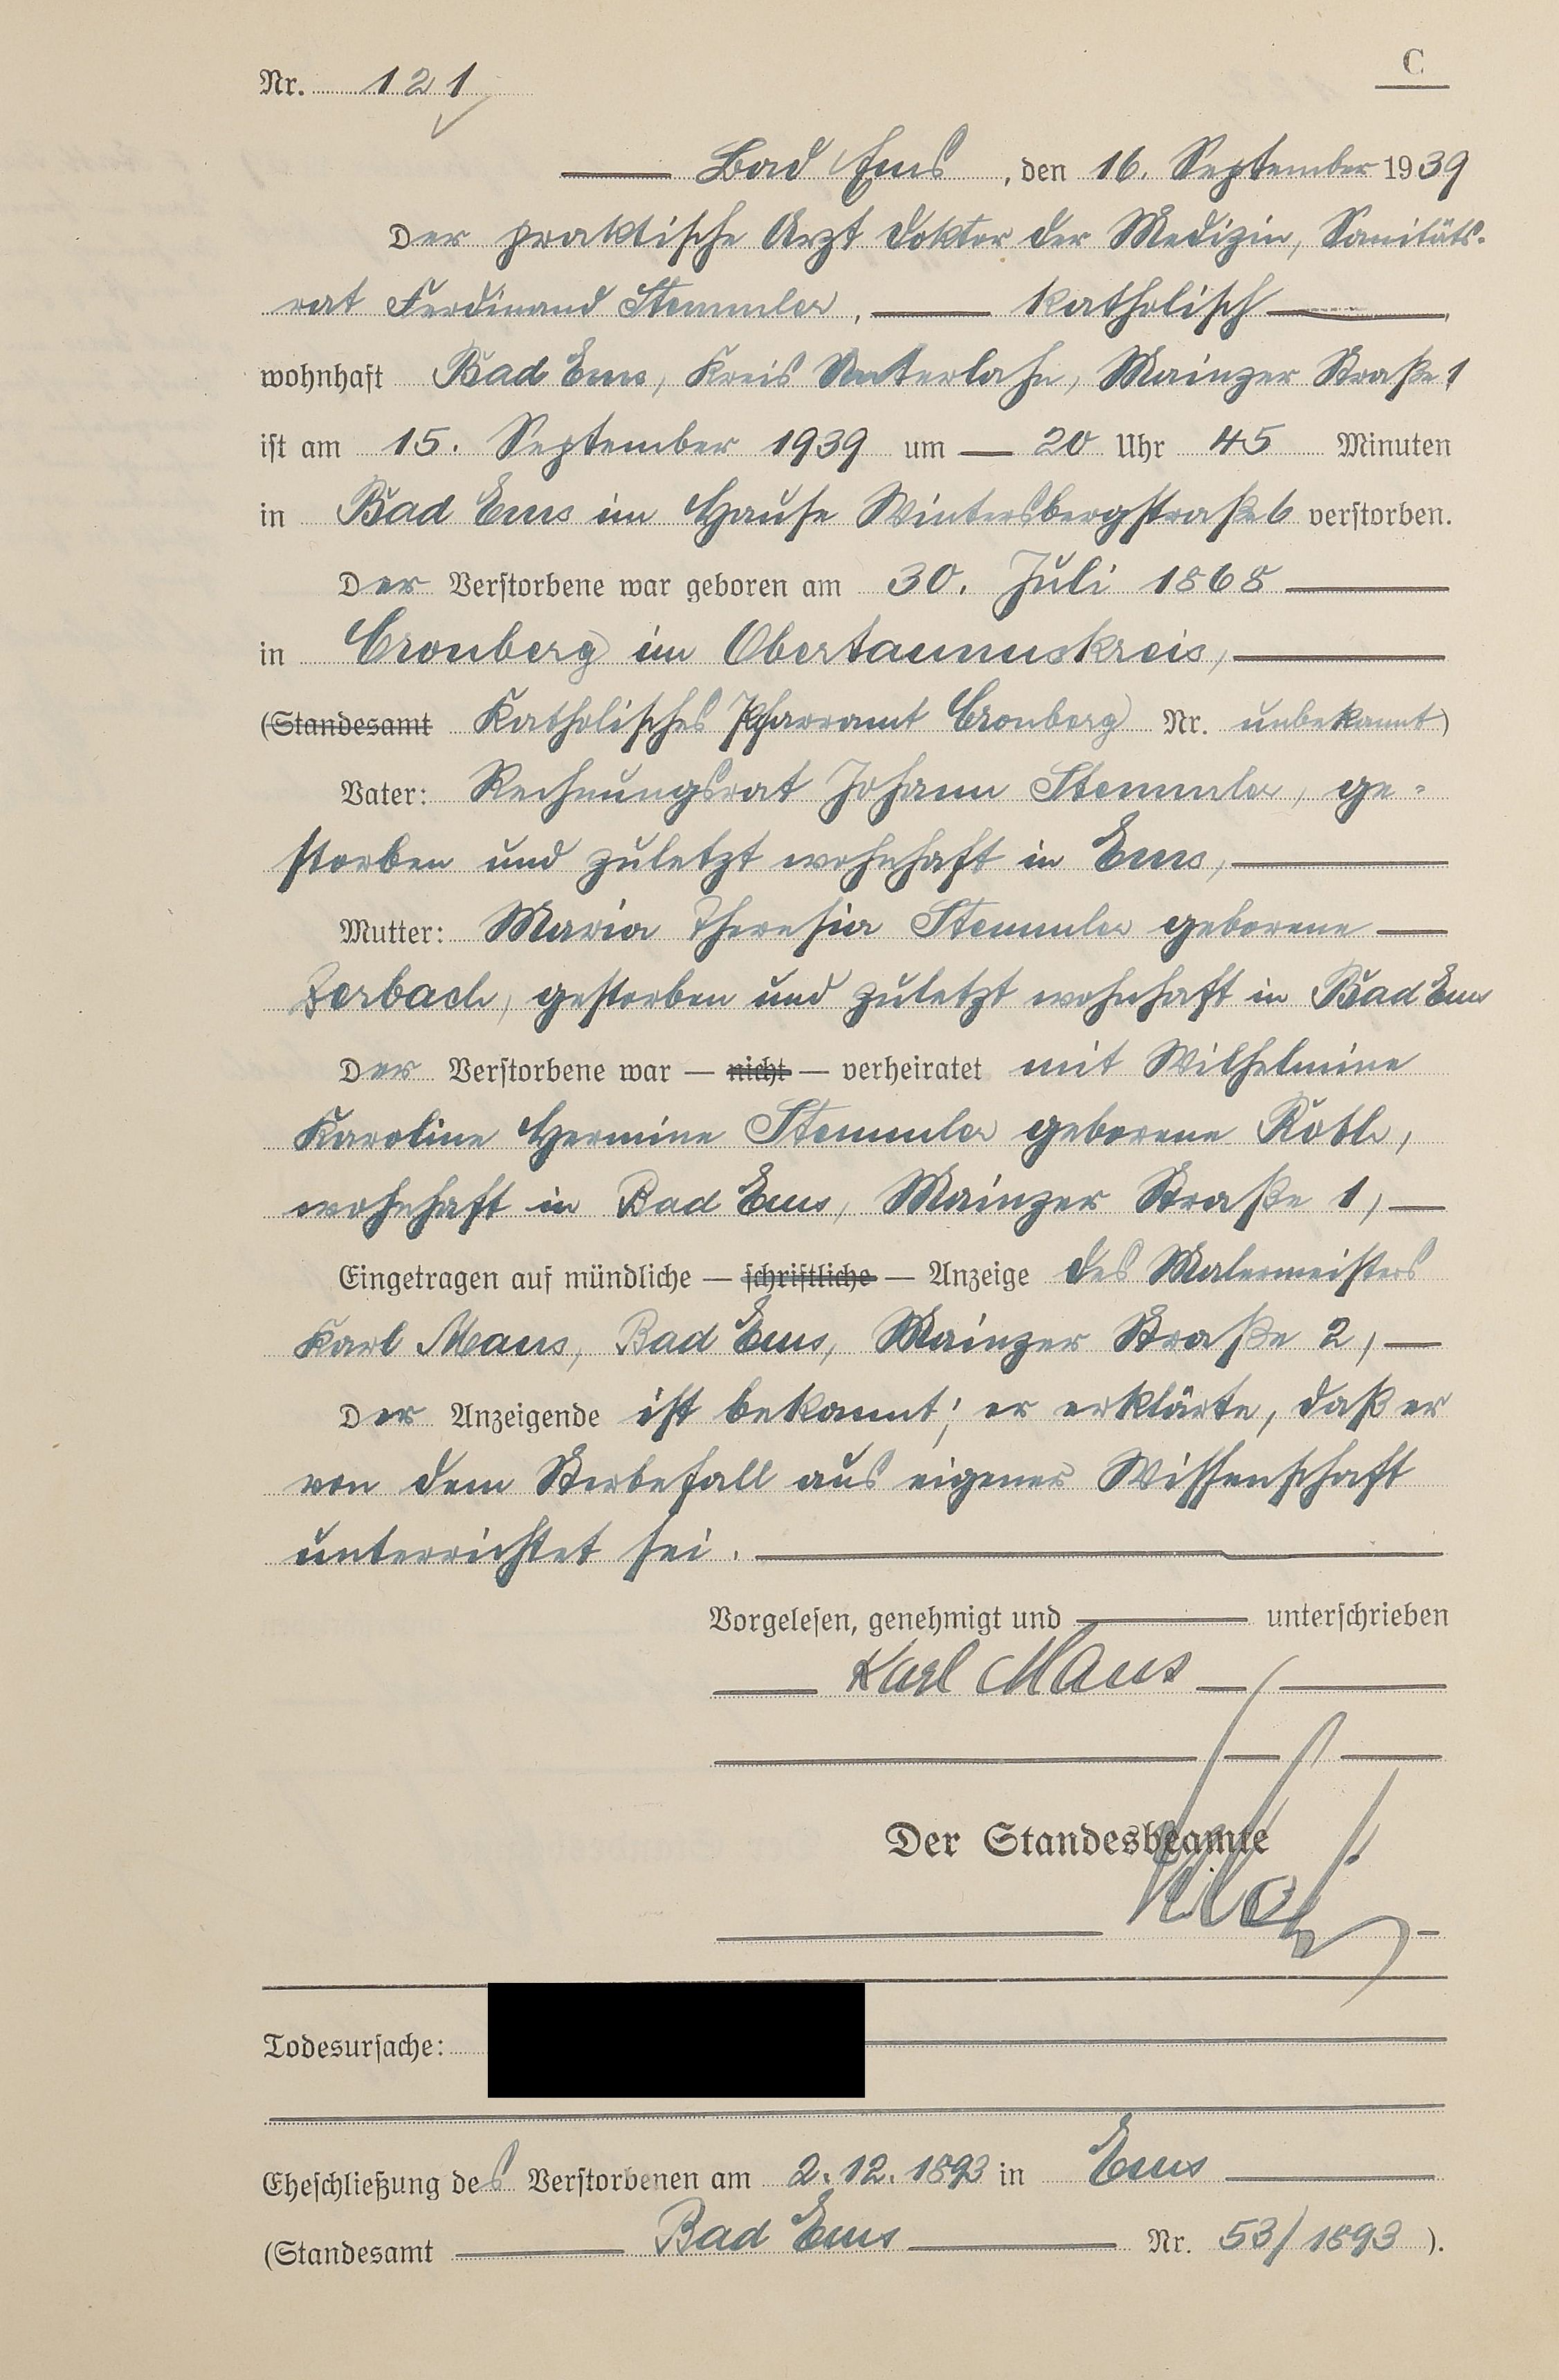 C
Nr. 121
Bad Ems, den 16. September 1939
Der praktische Arzt Doktor der Medizin, Sanitäts-
rat Ferdinand Stemmler, katholisch,
wohnhaft Bad Ems, Kreis Unterlahn, Mainzer Straße 1
ist am 15. September 1939 um 20 Uhr 45 Minuten
in Bad Ems im Hause Wintersbergstraße 6 verstorben.
Der Verstorbene war geboren am 30. Juli 1868
in Cronberg im Obertaunuskreis,
(Standesamt Katholisches Pfarramt Cronberg Nr. unbekannt)
Vater: Rechnungsrat Johann Stemmler, ge-
storben und zuletzt wohnhaft in Ems,
Mutter: Maria Theresia Stemmler geborene
Zerbach, gestorben und zuletzt wohnhaft in Bad Ems
Der Verstorbene war — nicht — verheiratet mit Wilhelmine
Karoline Hermine Stemmler geborene Röth,
wohnhaft in Bad Ems, Mainzer Straße 1,
Eingetragen auf mündliche — schriftliche — Anzeige des Malermeisters
Karl Maus, Bad Ems, Mainzer Straße 2,
Der Anzeigende ist bekannt; er erklärte, daß er
von dem Sterbefall aus eigener Wissenschaft
unterrichtet sei.
Vorgelesen, genehmigt und unterschrieben
Karl Maus
Der Standesbeamte
Todesursache:
Eheschließung des Verstorbenen am 2.12.1893 in Ems
(Standesamt Bad Ems Nr. 53/1893).